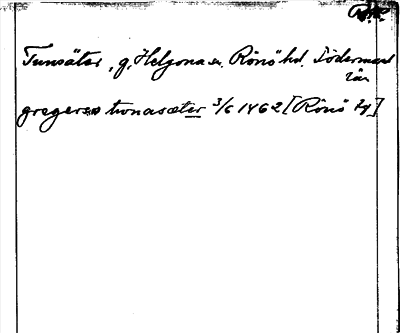 Tunsäter, g, Helgona sn. Rönö hd. Södermanl
län
gregerss tronasæter 3/6 1462 [Rönö 24]